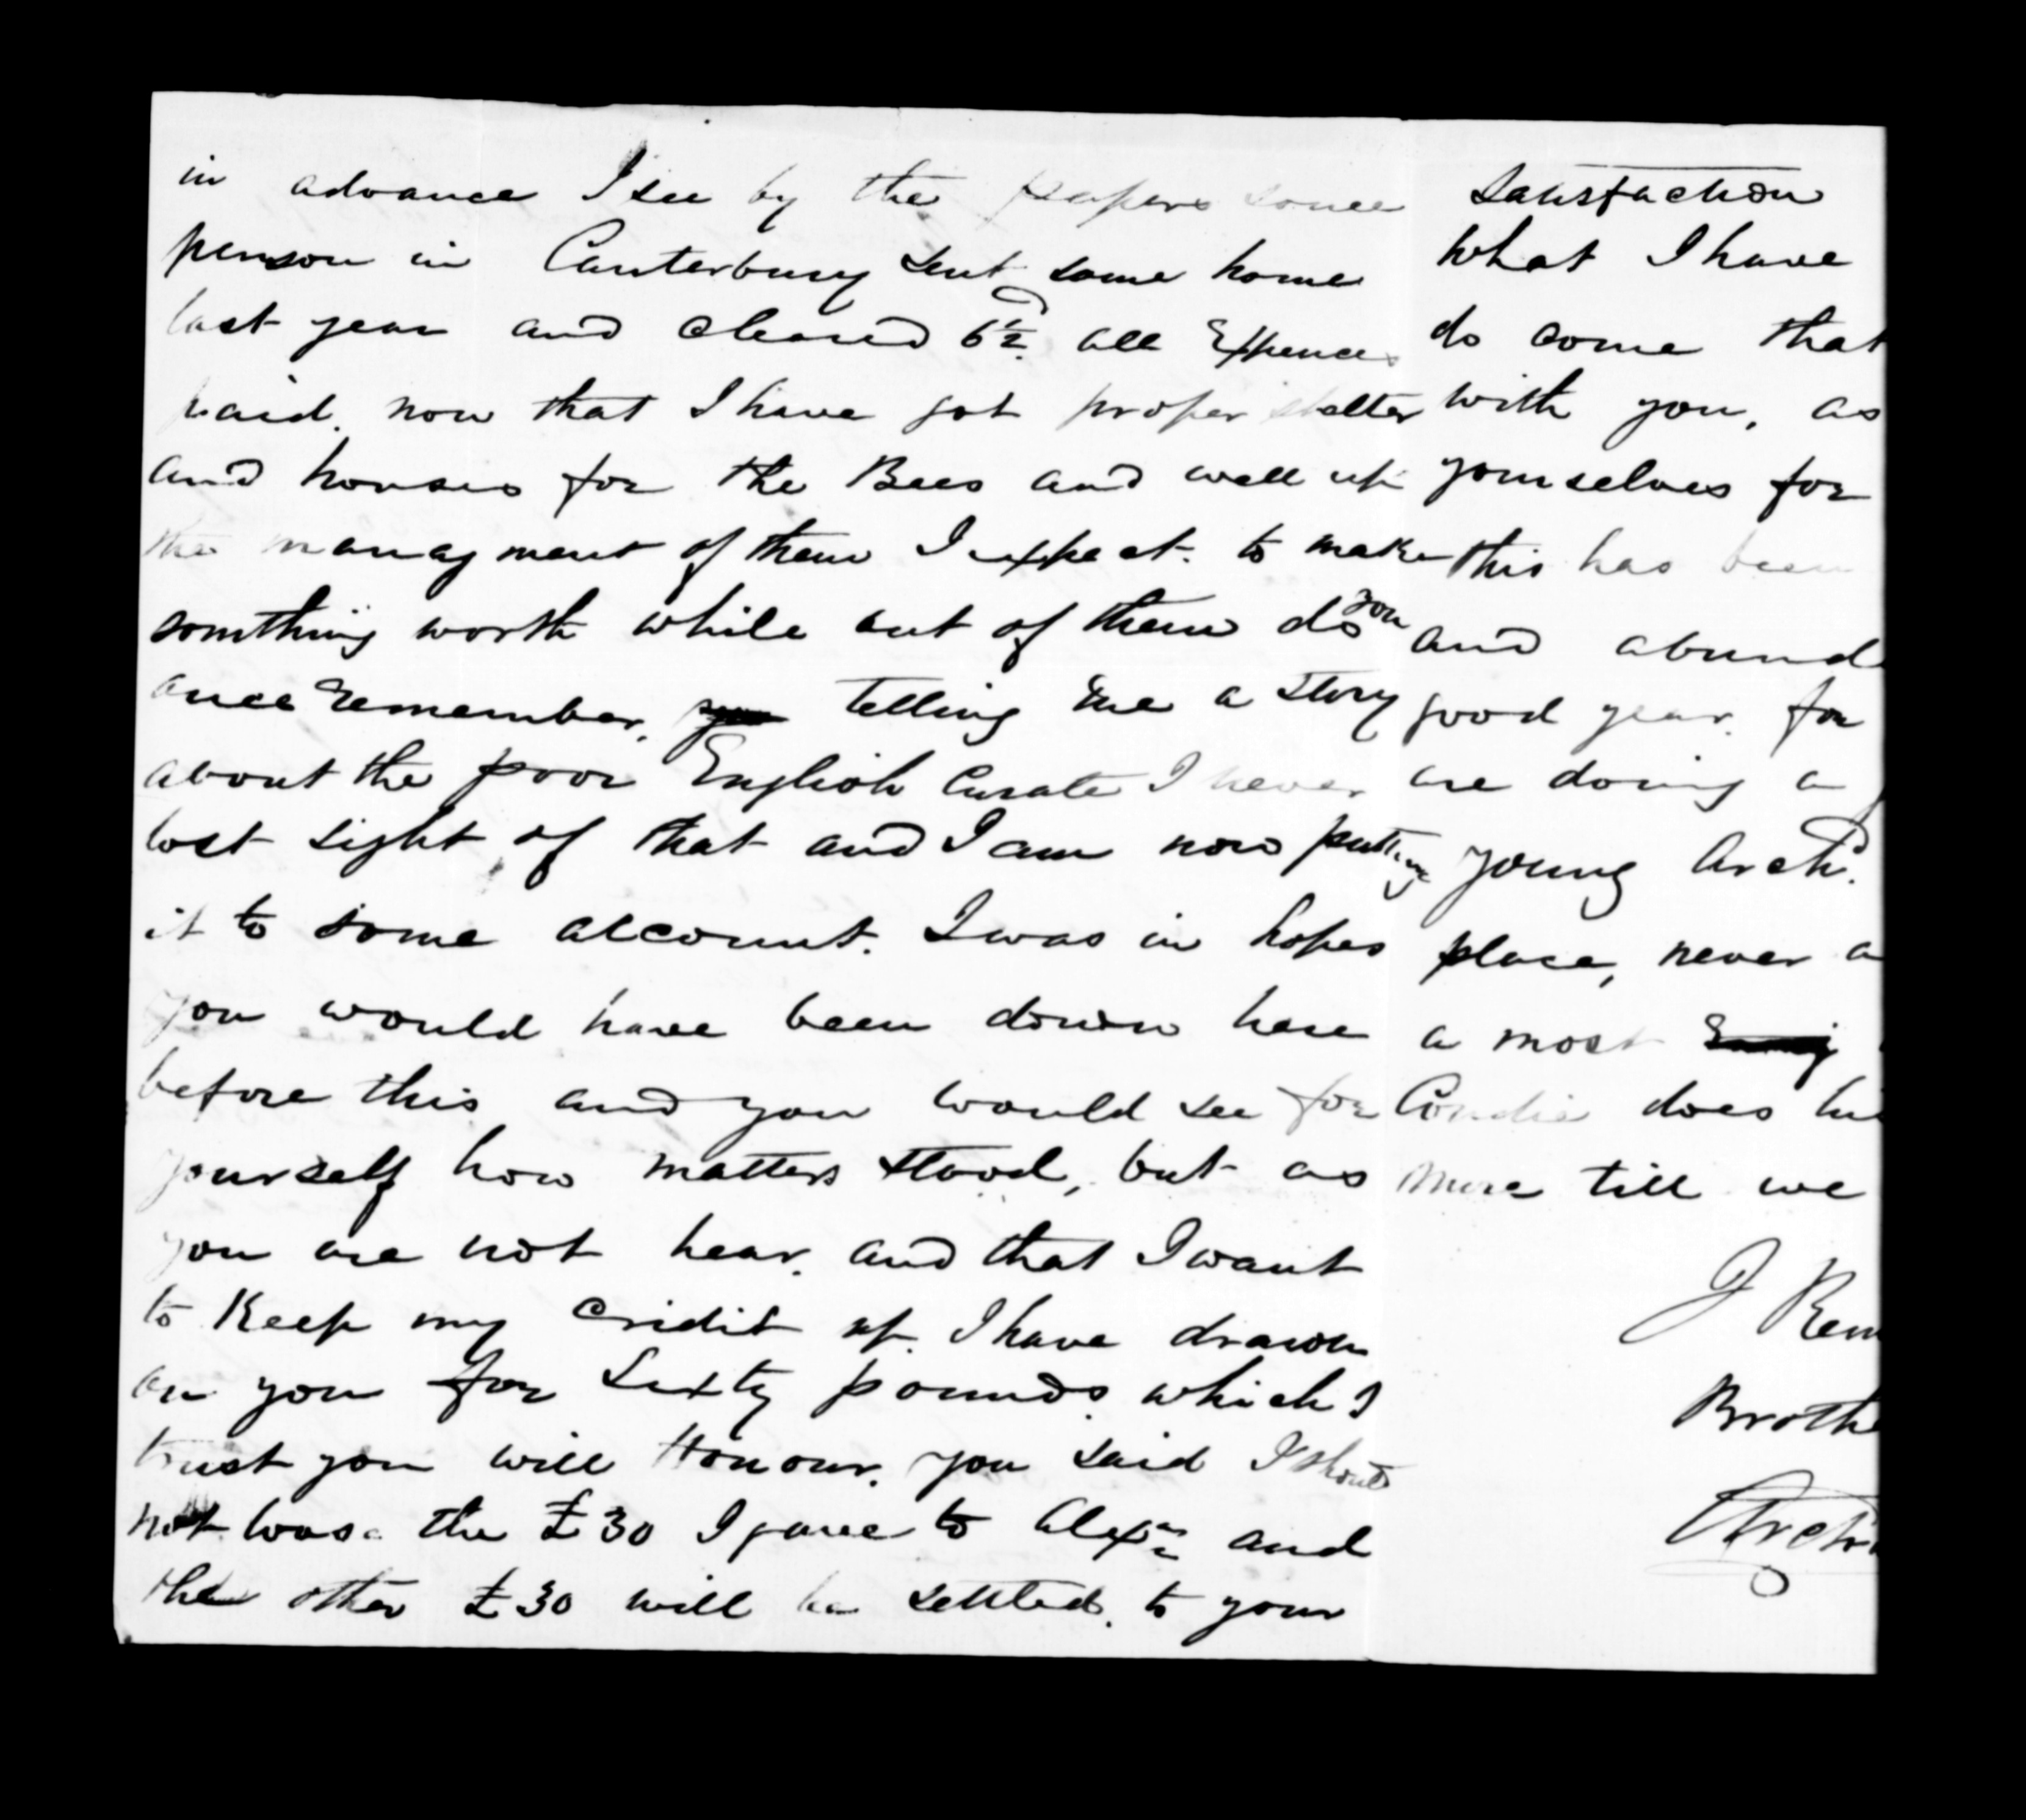 in advance I see by the papers some
person in Canterbury sent some home
last year and cleared 6½d all Expences
paid. now that I have got proper shelter
and houses for the Bees and well up
the managment of them I expect to make
somthing worth while out of them do you
ance remember, telling me a story
about the poor English Curate I never
lost sight of that and I am now putting
it to some account. I was in hopes
you would have been down here
before this and you would see for
yourself how matters stood, but as
you are not hear. and that I want
to Keep my Cridit up. I have drawn
on you for Sixty pounds which I
trust you will Honour. you said I should
not loose the £30 I gave to Alexr and
the other £30 will be settled to your
Satisfaction
What I have
do come that
with you, as
yourselves for
this has been
and abund
good year. for
are doing a
young Archd.
place, never a
a most
Condie does
more till we
I Rem
Brothe
Arch